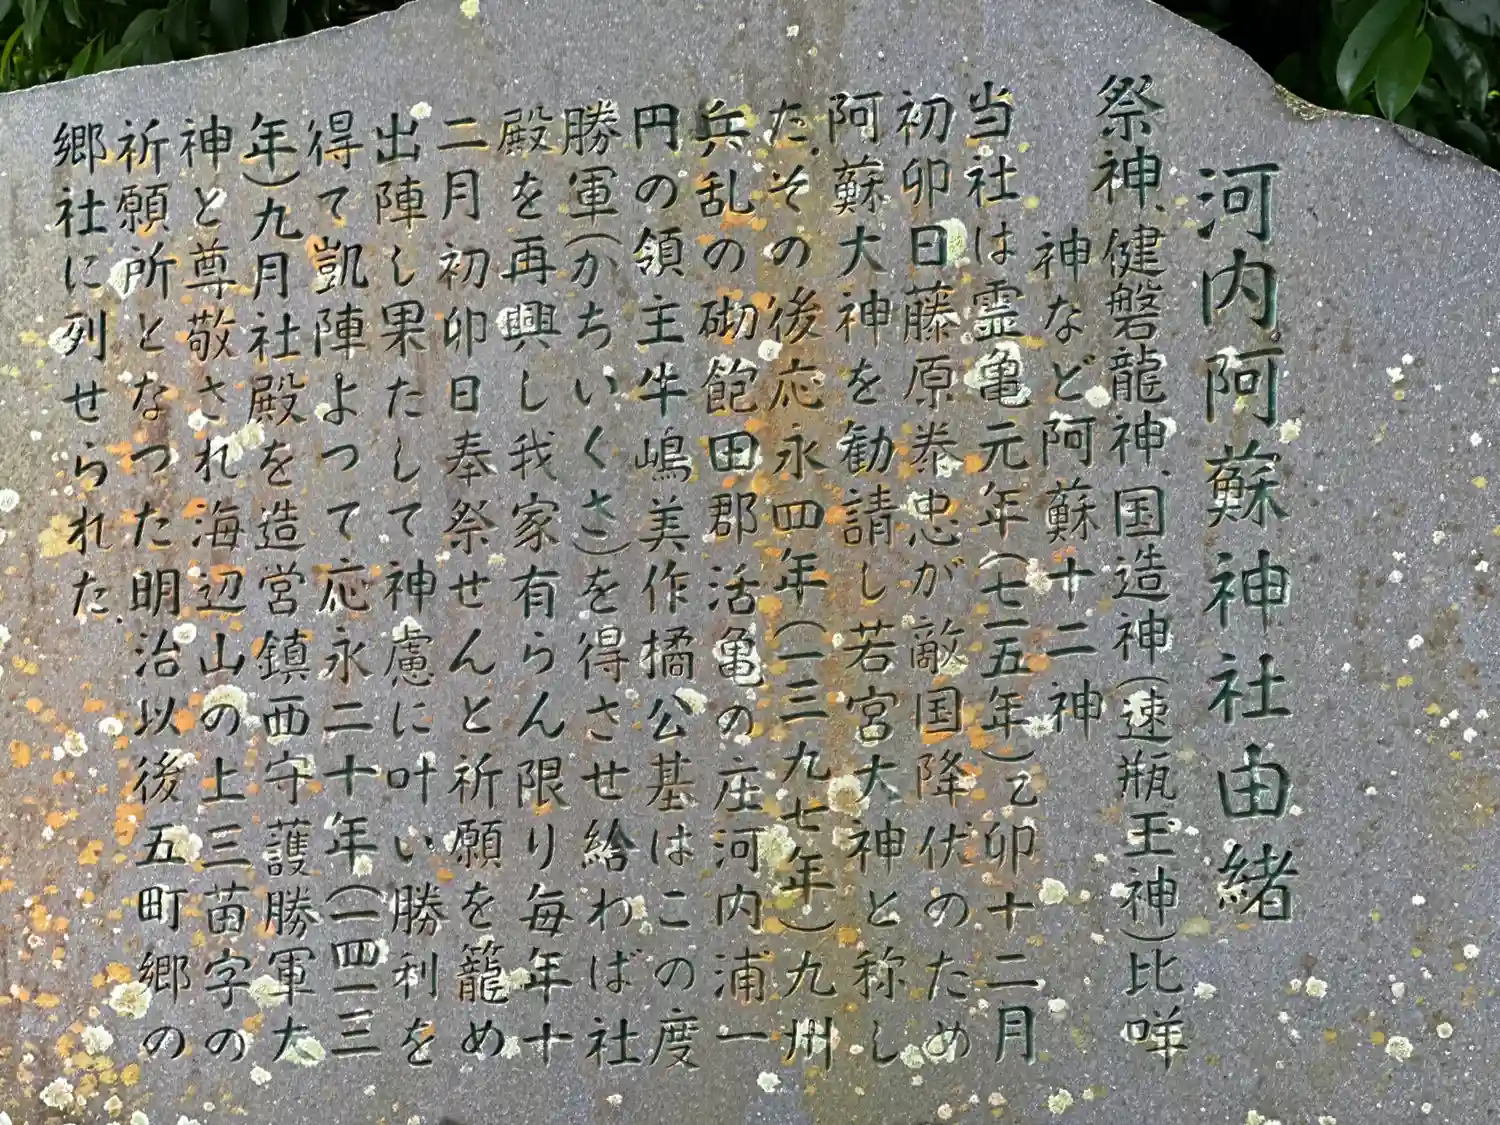 河内阿蘇神社由緒
祭神、健磐龍神、国造神(速瓶玉神)比咩
神など阿蘇十二神
当社は霊亀元年(七一五年)乙卯十二月
初卯日藤原泰忠が敵国降伏のため
阿蘇大神を勧請し若宮大神と称し
た、その後応永四年(一三九七年)九州
兵乱の砌飽田郡活亀の庄河内浦一
円の領主牛嶋美作橘公基はこの度
勝軍(かちいくさ)を得させ給わば社
殿を再興し我家有らん限り毎年十
二月初卯日奉祭せんと祈願を籠め
出陣し果たして神慮に叶い勝利を
得て凱陣よつて応永二十年(一四一三
年)九月社殿を造営鎮西守護勝軍大
神と尊敬され海辺山の上三苗字の
祈願所となつた明治以後五町郷の
郷社に列せられた、